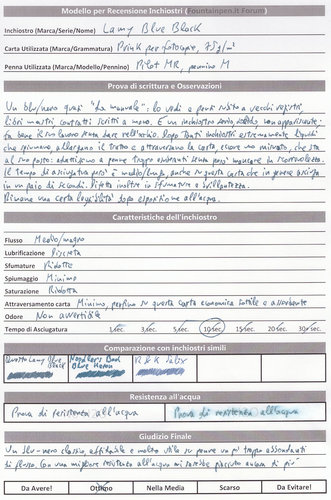 Modello per Recensione Inchiostri (Fountainpen.it Forum)
Inchiostro (Marca/Serie/Nome) Lamy Blue Black
Carta Utilizzata (Marca/Grammatura) Print per fotocopie, 75g/m²
Penna Utilizzata (Marca/Modello/Pennino) Pilot MR, pennino M
Prova di scrittura e Osservazioni
Un blu/nero quasi "da manuale". Lo vedi e pensi subito a vecchi registri,
libri mastri, contratti scritti a mano. È un inchiostro serio, solido, non appariscente.
Fa bene il suo lavoro senza dare nell'occhio. Dopo tanti inchiostri estremamente liquidi
che spiumano, allargano il tratto e attraversano la carta, eccone uno misurato, che sta
al suo posto: adattissimo a penne troppo esuberanti senza però mancare in scorrevolezza.
Il tempo di asciugatura però è medio/lungo, anche su questa carta che in genere asciuga
in un paio di secondi. Difetta inoltre in sfumature e brillantezza.
Rimane una certa leggibilità dopo esposizione all'acqua.
Caratteristiche dell'inchiostro
Flusso Medio/magro
Lubrificazione Discreta
Sfumature Ridotte
Spiumaggio Minimo
Saturazione Ridotta
Attraversamento carta Minimo, perfino su questa carta economica sottile e assorbente
Odore Non avvertibile
Tempo di Asciugatura 1 sec. 3 sec. 5 sec. 10 sec. 15 sec. 20 sec. 30 sec.
Comparazione con inchiostri simili
Questo Lamy Blue Black
Noodler's Bad Blue Heron
R & K Salix
Resistenza all'acqua
Prova di resistenza all'acqua Prova di resistenza all'acqua
Giudizio Finale
Un blu-nero classico, affidabile e molto utile su penne un po' troppo abbondanti
di flusso. Con una migliore resistenza all'acqua mi sarebbe piaciuto ancora di più
Da Avere! Ottimo Nella Media Scarso Da Evitare!